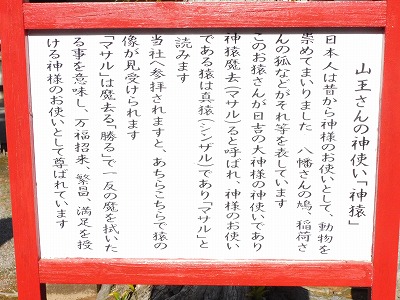 山王さんの神使い「神猿」
日本人は昔から神様のお使いとして、動物を
崇めてまいりました 八幡さんの鳩、稲荷さ
んの狐などがそれ等を表しています
このお猿さんが日吉の大神様の神使いであり
神猿魔去(マサル)ると呼ばれ、神様のお使い
である猿は真猿(シンザル)であり「マサル」と
読みます
当社へ参拝されますと、あちらこちらで猿の
像が見受けられます
「マサル」は魔去る「勝る」で一反の魔を拭いた
る事を意味し、万福招来、繁昌、満足を授
ける神様のお使いとして尊ばれています